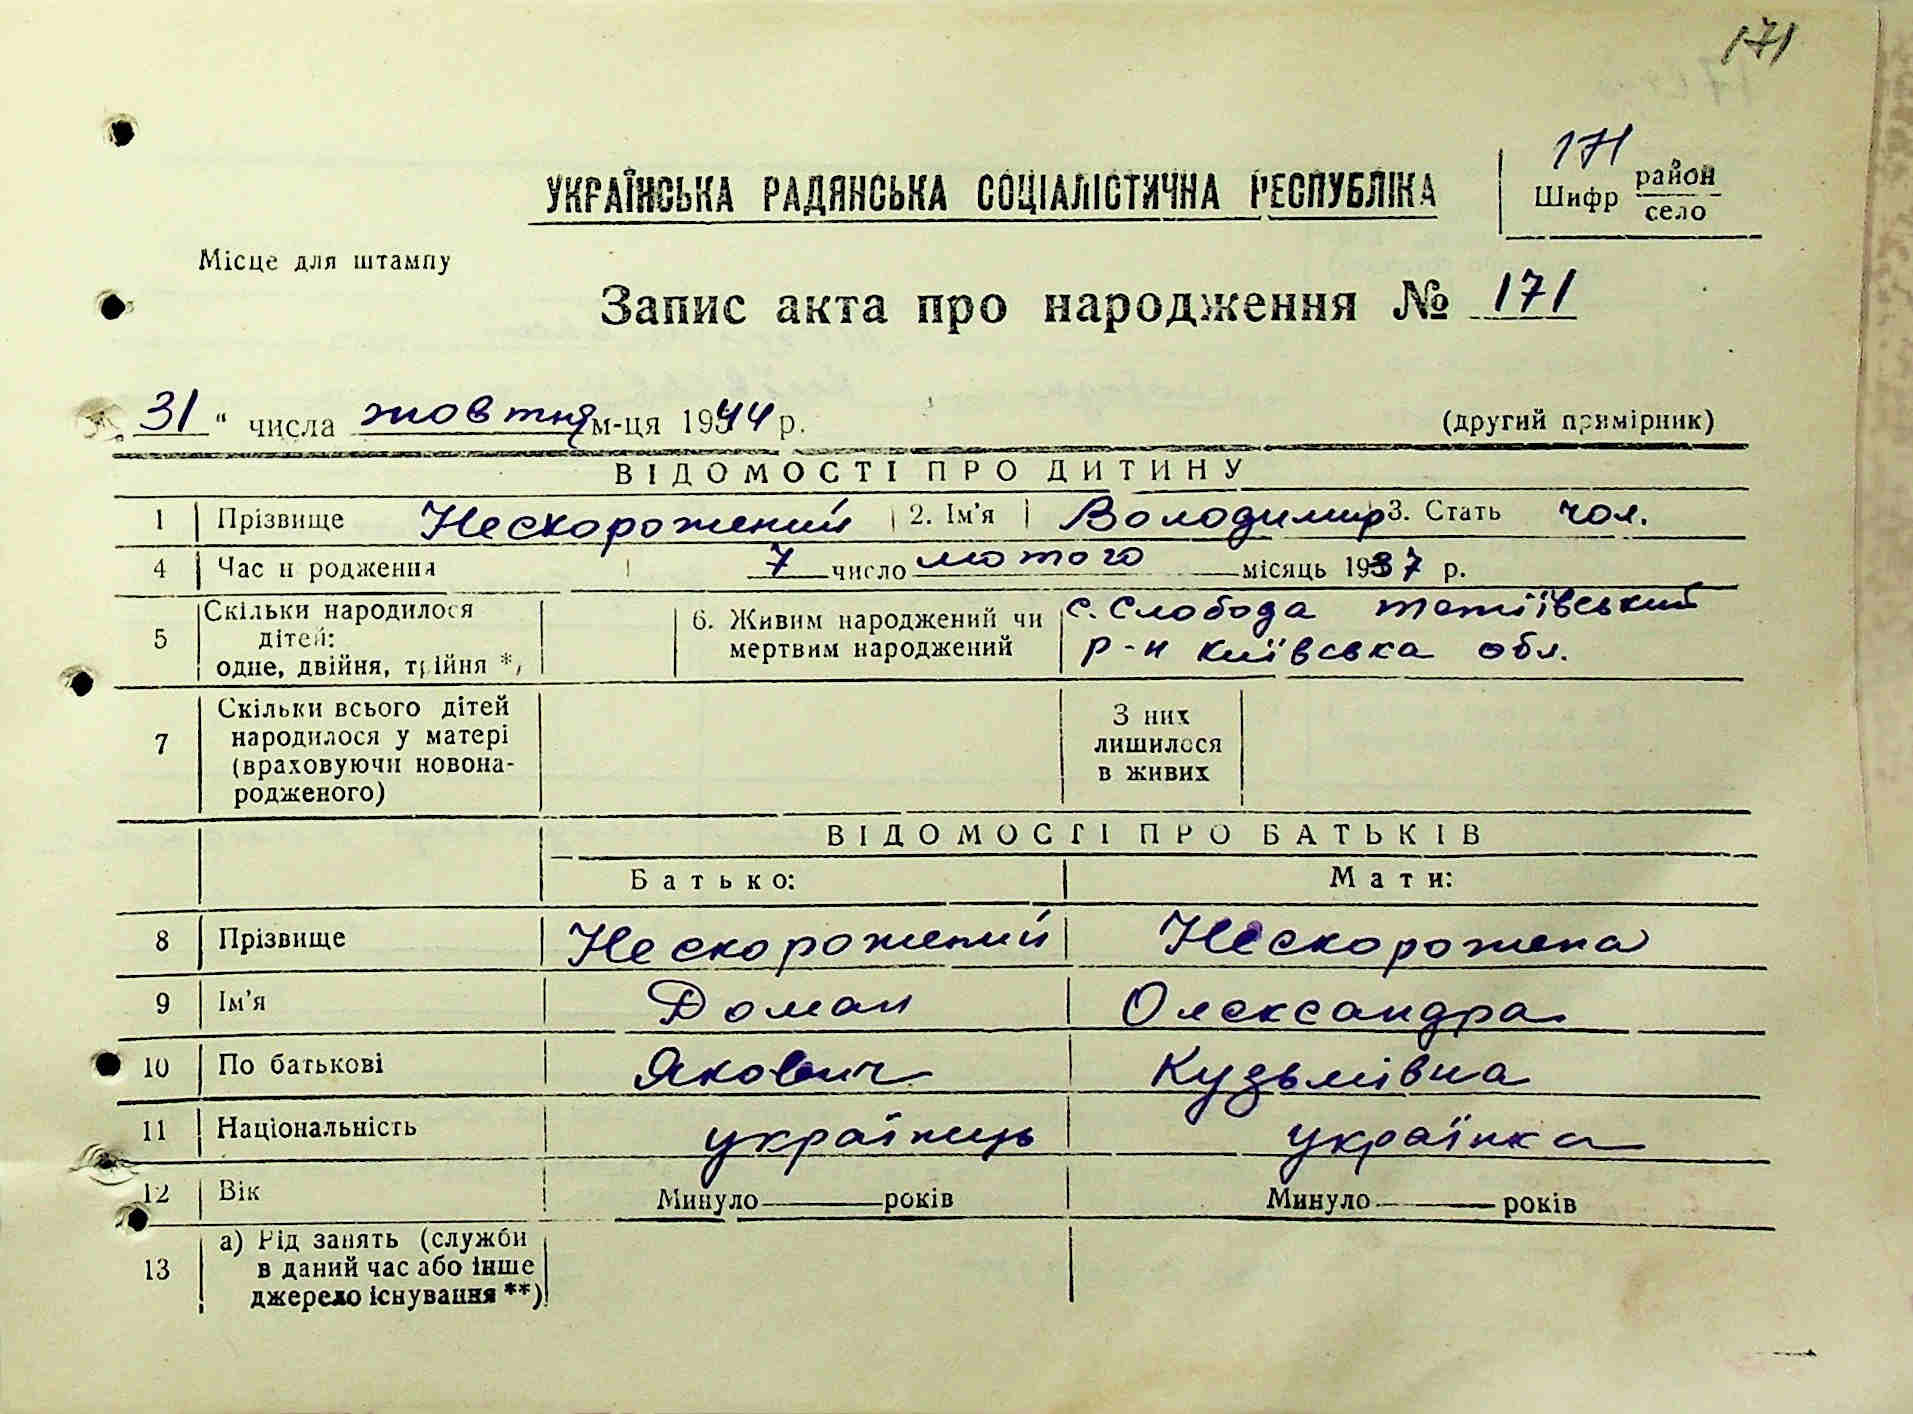 171
171
УКРАЇНСЬКА РАДЯНСЬКА СОЦІАЛІСТИЧНА РЕСПУБЛІКА
Шифр район
село
Місце для штампу
Запис акта про народження № 171
„31“ числа жовтня м-ця 1944 р.
(другий примірник)
ВІДОМОСТІ ПРО ДИТИНУ
1 Прізвище Нескорожений 2. Ім'я Володимир 3. Стать чол.
4 Час народження 7 число лютого місяць 1937 р.
5 Скільки народилося дітей: одне, двійня, трійня *)
6. Живим народжений чи мертвим народжений
с. Слобода тетіївський
р-н київсвка обл.
7 Скільки всього дітей народилося у матері (враховуючи новонародженого)
З них лишилося в живих
ВІДОМОСТІ ПРО БАТЬКІВ
Батько: Мати:
8 Прізвище Нескорожений Нескорожена
9 Ім'я Доман Олександра
10 По батькові Якович Кузьмівна
11 Національність українець українка
12 Вік Минуло років Минуло років
13 а) Рід занять (служби
в даний час або інше
джерело існування **)